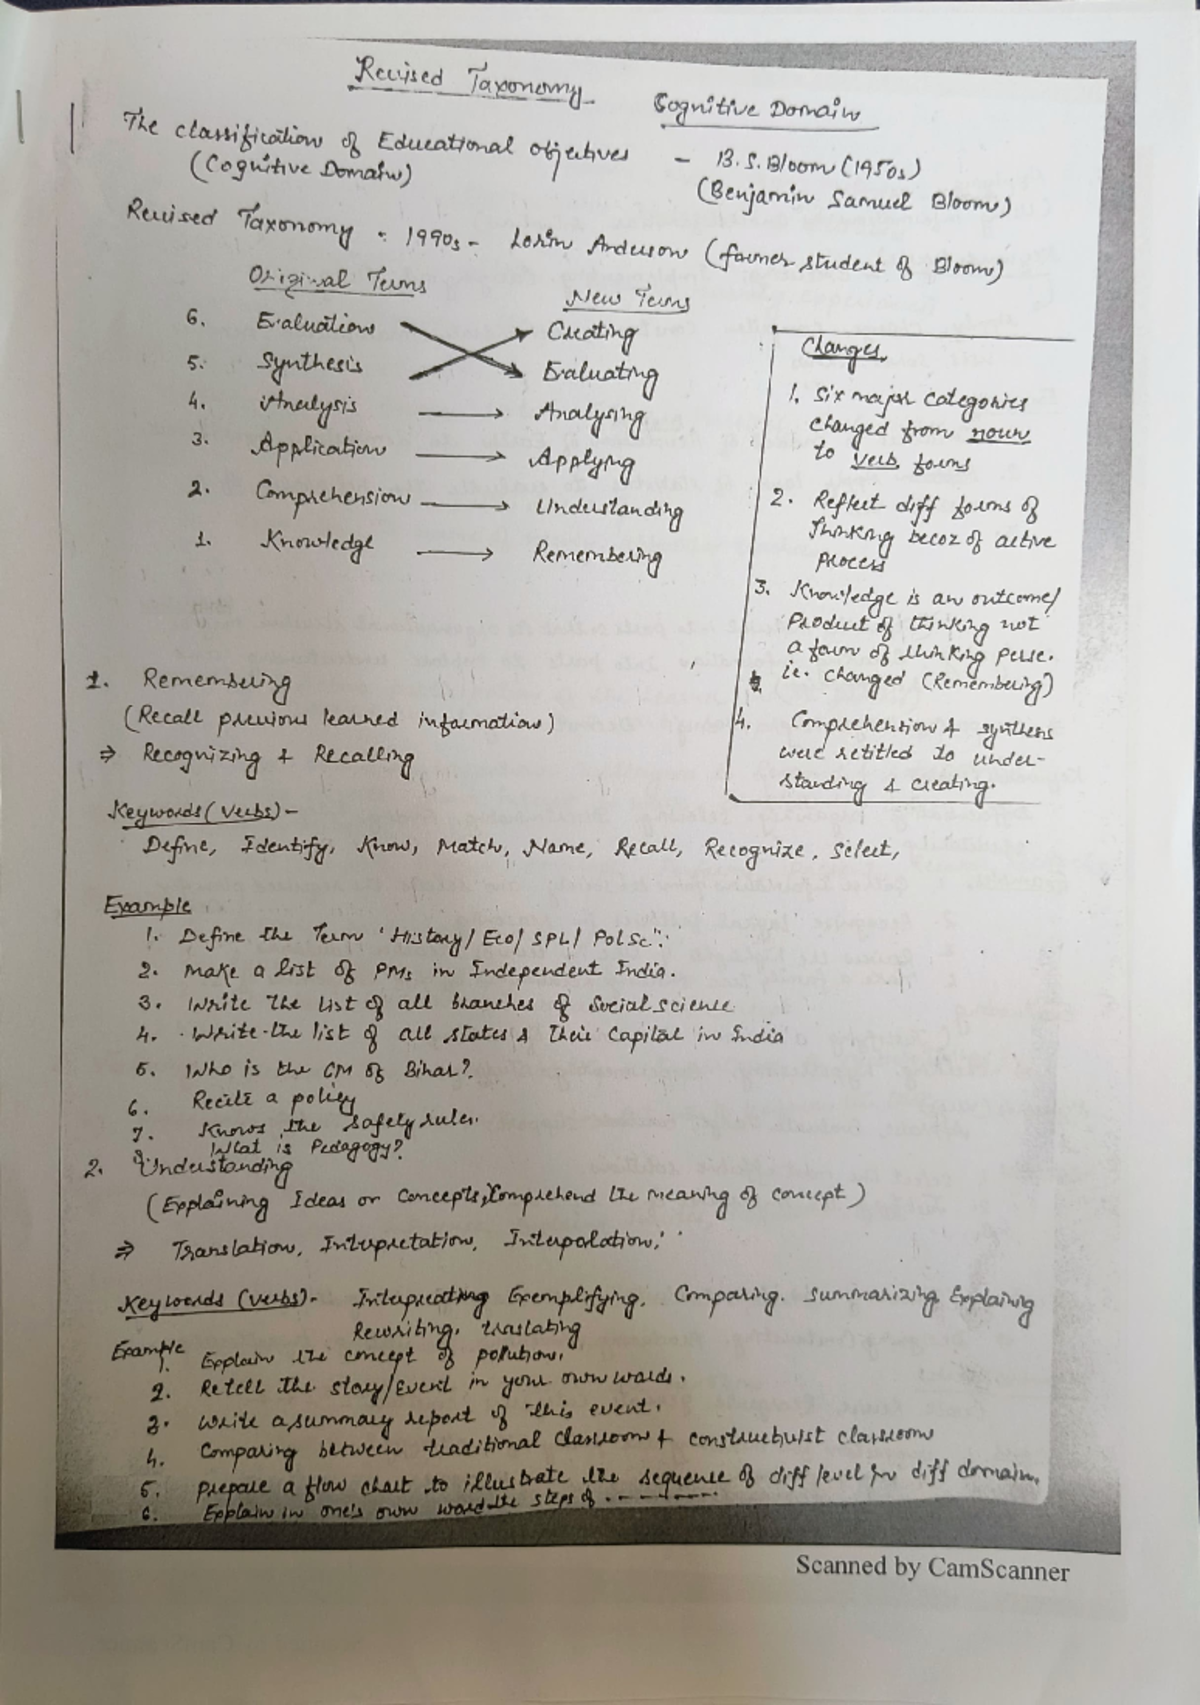 Revised Taxonomy
Cognitive Domain
The classification of Educational objectives - B.S. Bloom (1950s)
(Cognitive Domain) (Benjamin Samuel Bloom)
Revised Taxonomy - 1990s - Lorin Anderson (former student of Bloom)
Original Terms New Terms
6. Evaluation Creating
5. Synthesis Evaluating
4. Analysis → Analysing
3. Application → Applying
2. Comprehension → Understanding
1. Knowledge → Remembering
Changes
1. Six major categories
changed from noun
to verb forms
2. Reflect diff forms of
thinking becoz of active
process
3. Knowledge is an outcome/
product of thinking not
a form of thinking perse.
ie. changed (Remembering)
4. Comprehension & synthesis
were retitled to under-
standing & creating.
1. Remembering
(Recall previous learned information)
⇒ Recognizing & Recalling
Keywords (Verbs) -
Define, Identify, Know, Match, Name, Recall, Recognize, Select,
Example
1. Define the Term "History/ Eco/ SPL/ PolSc".
2. Make a list of PMs in Independent India.
3. Write the list of all branches of Social science
4. Write the list of all states & their Capital in India
5. Who is the CM of Bihar?
6. Recite a policy
7. Knows the safety rules.
8. What is Pedagogy?
2. Understanding
(Explaining Ideas or Concepts, Comprehend the meaning of concept)
⇒ Translation, Interpretation, Interpolation,
Keywords (Verbs) - Interpreating Exemplifying, Comparing. Summarizing Explaining
Rewriting, traslating
Example
1. Explain the concept of pollution.
2. Retell the story/Event in your own words.
3. Write a summary report of this event.
4. Comparing between traditional classroom & constructivist classroom
5. prepare a flow chart to illustrate the sequence of diff level for diff domain.
6. Explain in one's own word the steps of ----------
Scanned by CamScanner